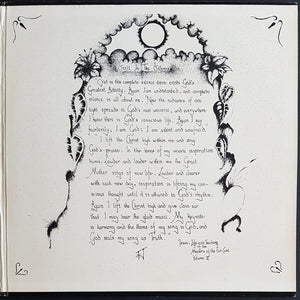 God in this complete silence there exists God's
Greatest Activity. Again I am undisturbed, and complete
silence is all about me. Now the audience of dis-
ciples spreads to God's vast universe, and everywhere
I know there is God's conscious life. Again I say
fearlessly, I am God; I am silent and unafraid
I lift the Christ high within me and sing
God's praise. In the tones of my music inspiration
hums. Louder and louder within me the Great
Mother sings of new life. Louder and clearer
with each new day, inspiration is lifting my con-
scious thought until it is attuned to God's rhythm.
Again I lift the Christ high and give close ear
that I may hear the glad music. My keynote
is harmony and the theme of my song is God, and
God seals my song as Truth.
From: Life and Teaching
of the
Masters of the Far East
Volume II